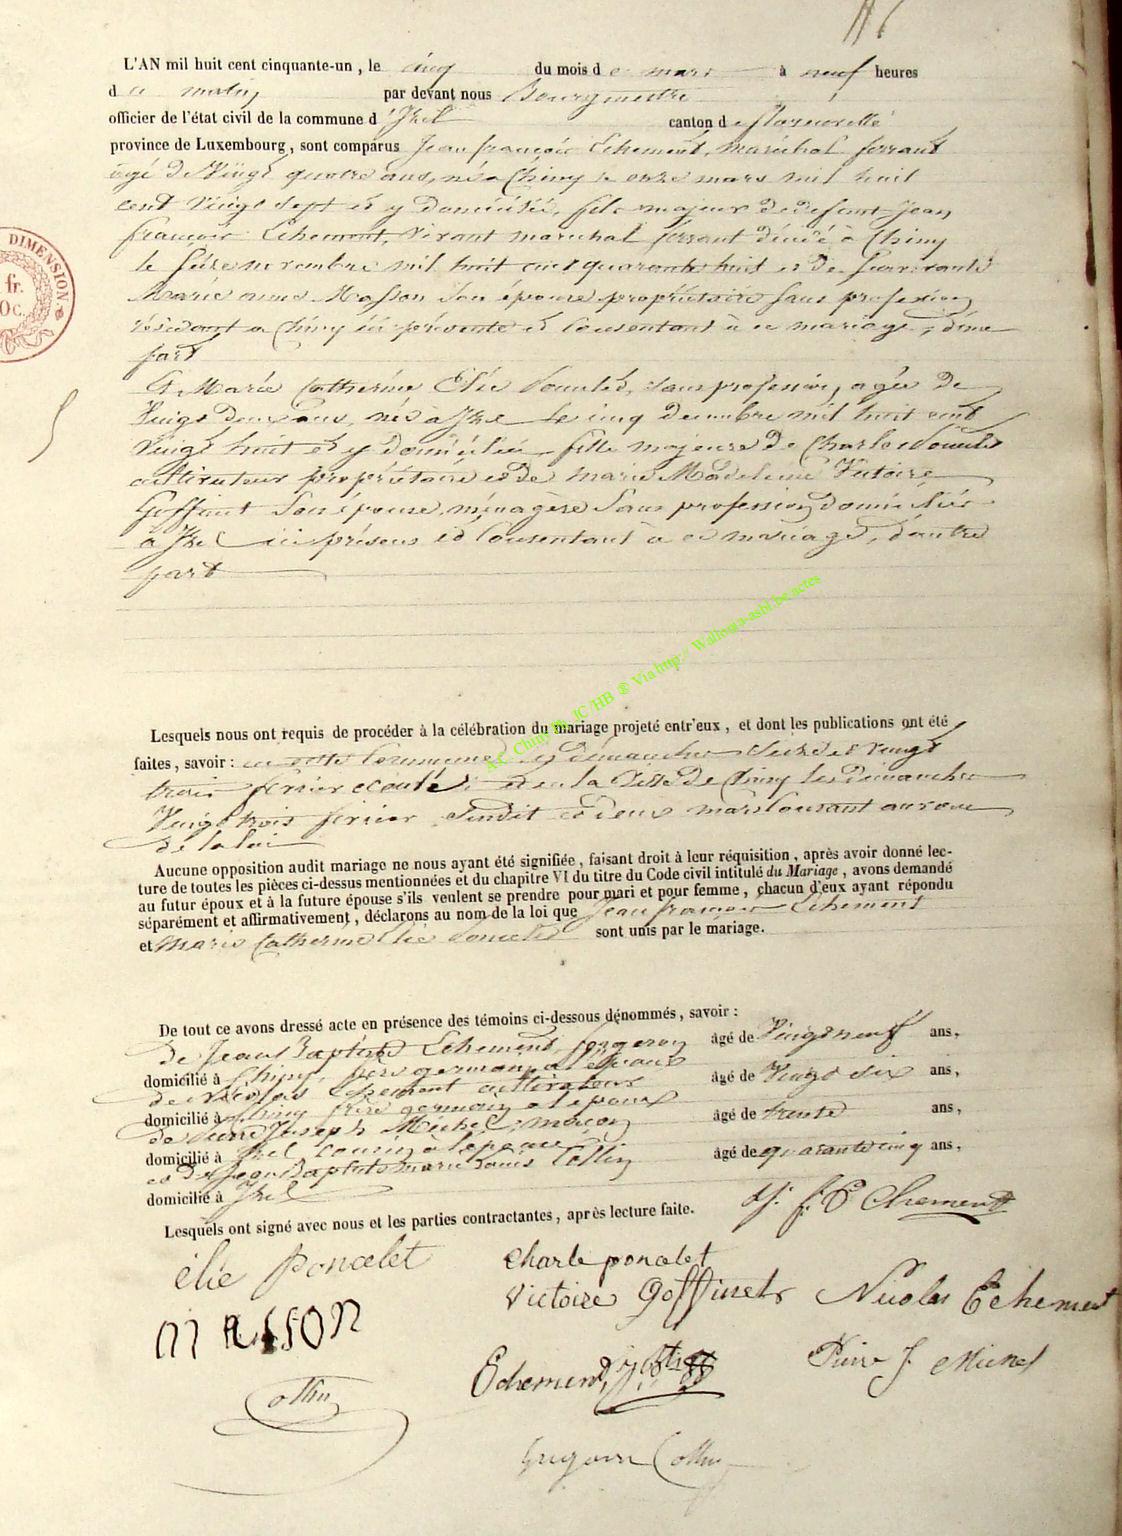 L'AN mil huit cent cinquante-un, le cinq du mois de mars à neuf heures
du matin par devant nous Bourgmestre
officier de l'état civil de la commune d'Izel canton de florenville
province de Luxembourg, sont comparus Jean françois Echement, maréchal ferrant
agé de Vingt quatre ans, né à Chiny le onze mars mil huit
cent vingt sept et y domicilié, fils majeur de defunt Jean
françois Echement, vivant marechal ferrant décédé à Chiny
le seize novembre mil huit cent quarante huit et de survivante
Marie anne Masson son épouse propriétaire sans profession
résidant a Chiny ici présente et consentant à ce mariage, d'une
part
Et Marie Catherine Elie Poncelet, sans profession, agée de
Vingt deux ans, née à Izel le cinq decembre mil huit cent
vingt huit et y domiciliée fille majeure de Charle Poncelet
cultivateur propriétaire et de marie Madeleine Victoire
Goffinet son épouse, ménagère sans profession domiciliés
à Izel ici présens et consentant à ce mariage, d'autre
part
DIMENSION
fr.
Oc.
A.C. Chiny Ph. JC/HB ® Via http:// Wallonia-asbl.be.actes
Lesquels nous ont requis de procéder à la célébration du mariage projeté entr'eux, et dont les publications ont été
faites, savoir : en cette Commune les dimanches seize et vingt
trois fevrier ecoulé; et en la de Chiny les dimanches
Vingt trois fevrier susdit et deux mars courant au voeu
de la loi
Aucune opposition audit mariage ne nous ayant été signifiée, faisant droit à leur réquisition, après avoir donné lec-
ture de toutes les pièces ci-dessus mentionnées et du chapitre VI du titre du Code civil intitulé du Mariage, avons demandé
au futur époux et à la future épouse s'ils veulent se prendre pour mari et pour femme, chacun d'eux ayant répondu
séparément et affirmativement, déclarons au nom de la loi que Jean françois Echement
et Marie Catherine Elie Poncelet sont unis par le mariage.
De tout ce avons dressé acte en présence des témoins ci-dessous dénommés, savoir :
De Jean Baptiste Echement, forgeron âgé de Vingt neuf ans,
domicilié à Chiny, frère germain a l'époux
de Nicolas Echement cultivateur âgé de Vingt six ans,
domicilié à Chiny frère germain a l'époux
de Pierre Joseph Michel, maçon âgé de trente ans,
domicilié à Izel, cousin à l'épouse
et de Jean Baptiste marie Louis Collin âgé de quarante cinq ans,
domicilié à Izel
Lesquels ont signé avec nous et les parties contractantes, après lecture faite. J. f. Echement
élie Poncelet charle poncelet
Victoire Goffinet Nicolas Echement
MASSON
Echement Pierre J. Michel
Collin
Gregoire Collin